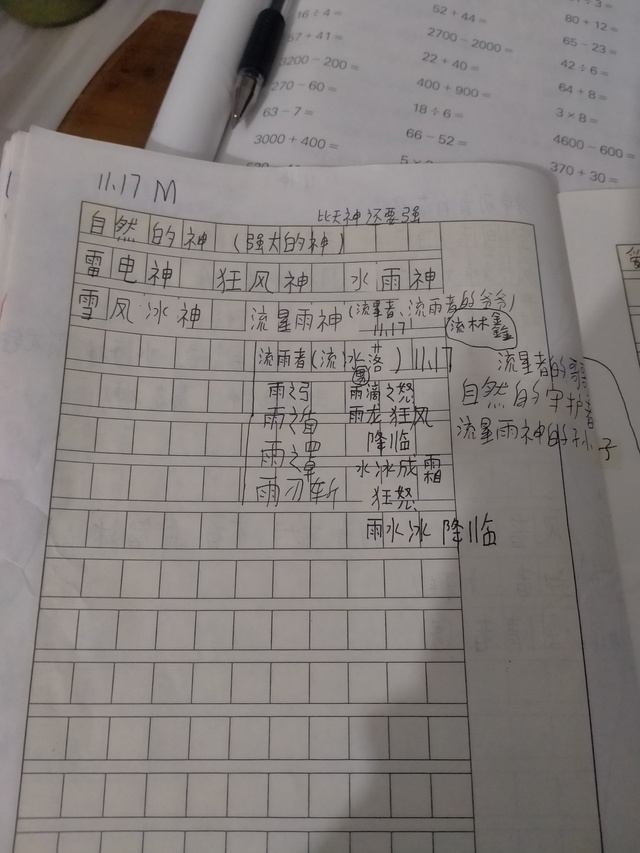 16÷4=
52+44=
80+12=
57+41=
2700-2000=
65-23=
3200-200=
22+40=
42÷6=
270-60=
400+900=
64+8=
63-7=
18÷6=
3×8=
3000+400=
66-52=
4600-600=
370+30=
11.17 M
比天神还要强
自然的神（强大的神）
雷电神 狂风神 水雨神
雪风冰神 流星雨神（流星者、流雨者的爷爷）
11.17
流林鑫
流雨者（流冰洛）11.17
流星者的
雨之弓 雨滴之怒
自然的守护者
雨之盾 雨龙狂风
降临
流星雨神的孙子
雨之罩
水冰成霜
雨刃斩
狂怒
雨水冰降临